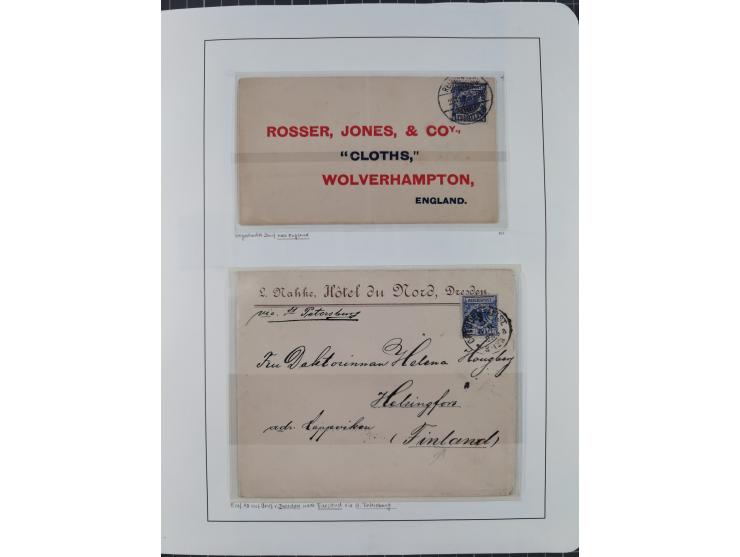 ROSSER, JONES, & COY.,
"CLOTHS,"
WOLVERHAMPTON,
ENGLAND.
nach England
L. Nahke, Hôtel du Nord, Dresden.
via St Petersburg
Fru Doktorinnan Helena Hougberg
Helsingfors
adr. Lappviken
(Finland)
Brief v. Dresden nach Finnland via St. Petersburg